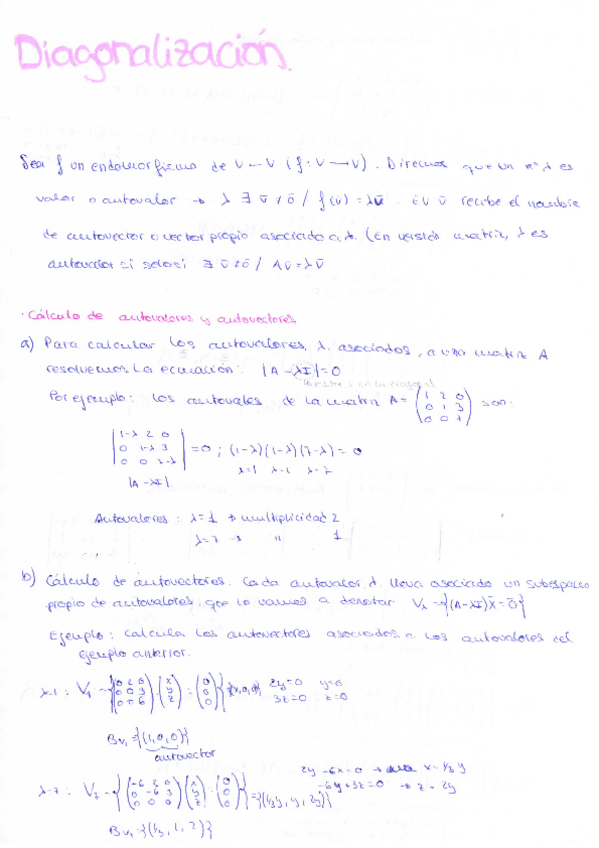 Diagonalización.
Sea f un endomorfismo de V → V (f: V → V). Diremos que un nº λ es
valor o autovalor → λ ∃ v̄ ≠ ō / f(v̄) = λv̄. El v̄ recibe el nombre
de autovector o vector propio asociado a λ. (En versión matriz, λ es
autovalor si solo si ∃ v̄ ≠ ō / Av̄ = λv̄
· Cálculo de autovalores y autovectores
a) Para calcular los autovalores, λ, asociados, a una matriz A
resolvemos la ecuación: |A - λI| = 0
en la diagonal
Por ejemplo: los autovales de la matriz A = (1 2 0
0 1 3
0 0 7) son:
|1-λ 2 0
0 1-λ 3
0 0 7-λ| = 0 ; (1-λ)(1-λ)(7-λ) = 0
λ=1 λ=1 λ=7
|A - λI|
Autovalores: λ = 1 → multiplicidad 2
λ = 7 → " 1
b) Cálculo de autovectores. Cada autovalor λ lleva asociado un subespacio
propio de autovalores, que lo vamos a denotar Vλ = {(A - λI)x̄ = ō}
Ejemplo: calcula los autovectores asociados a los autovalores del
ejemplo anterior.
λ=1 : V1 = {(0 2 0
0 0 3
0 0 6) · (x
y
z) = (0
0
0)} {(x,0,0)} 2y=0 y=0
3z=0 z=0
Bv1 = {(1,0,0)}
autovector
λ=7 : V7 = {(-6 2 0
0 -6 3
0 0 0) (x
y
z) · (0
0
0)} = {(1/3y, y, 2y)}
2y - 6x = 0 → x = 1/3 y
-6y + 3z = 0 → z = 2y
Bv7 = {(1/3, 1, 2)}